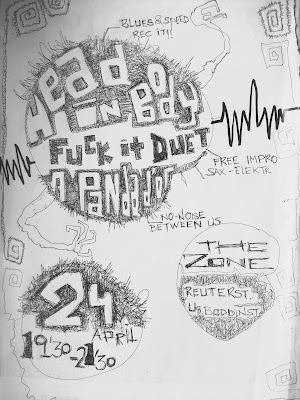 BLUES & SPEED
REC ITY!!
Head
IN BODY
FUCK it DUET
A PANDADOR
FREE IMPRO
SAX-ELEKTR
NO-NOISE
BETWEEN US
THE
ZONE
REUTERST.
U8 BODDINST.
24
APRIL
19'30-21'30